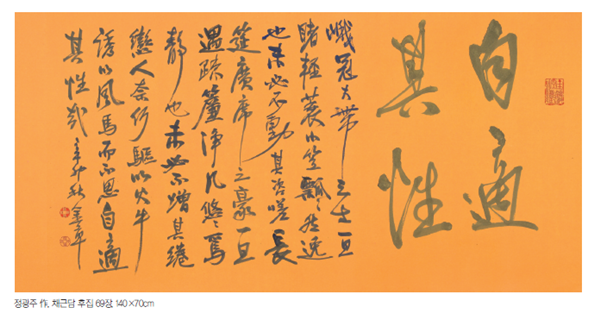 自適
其性
峨冠大帶之士一旦
睹輕蓑小笠飄飄然逸
也未必不動其咨嗟長
筵廣席之豪一旦
遇疎簾淨几悠悠焉
靜也未必不增其綣
戀人奈何驅以火牛
誘以風馬而不思自適
其性哉
정광주 作, 채근담 후집 69장, 140×70cm